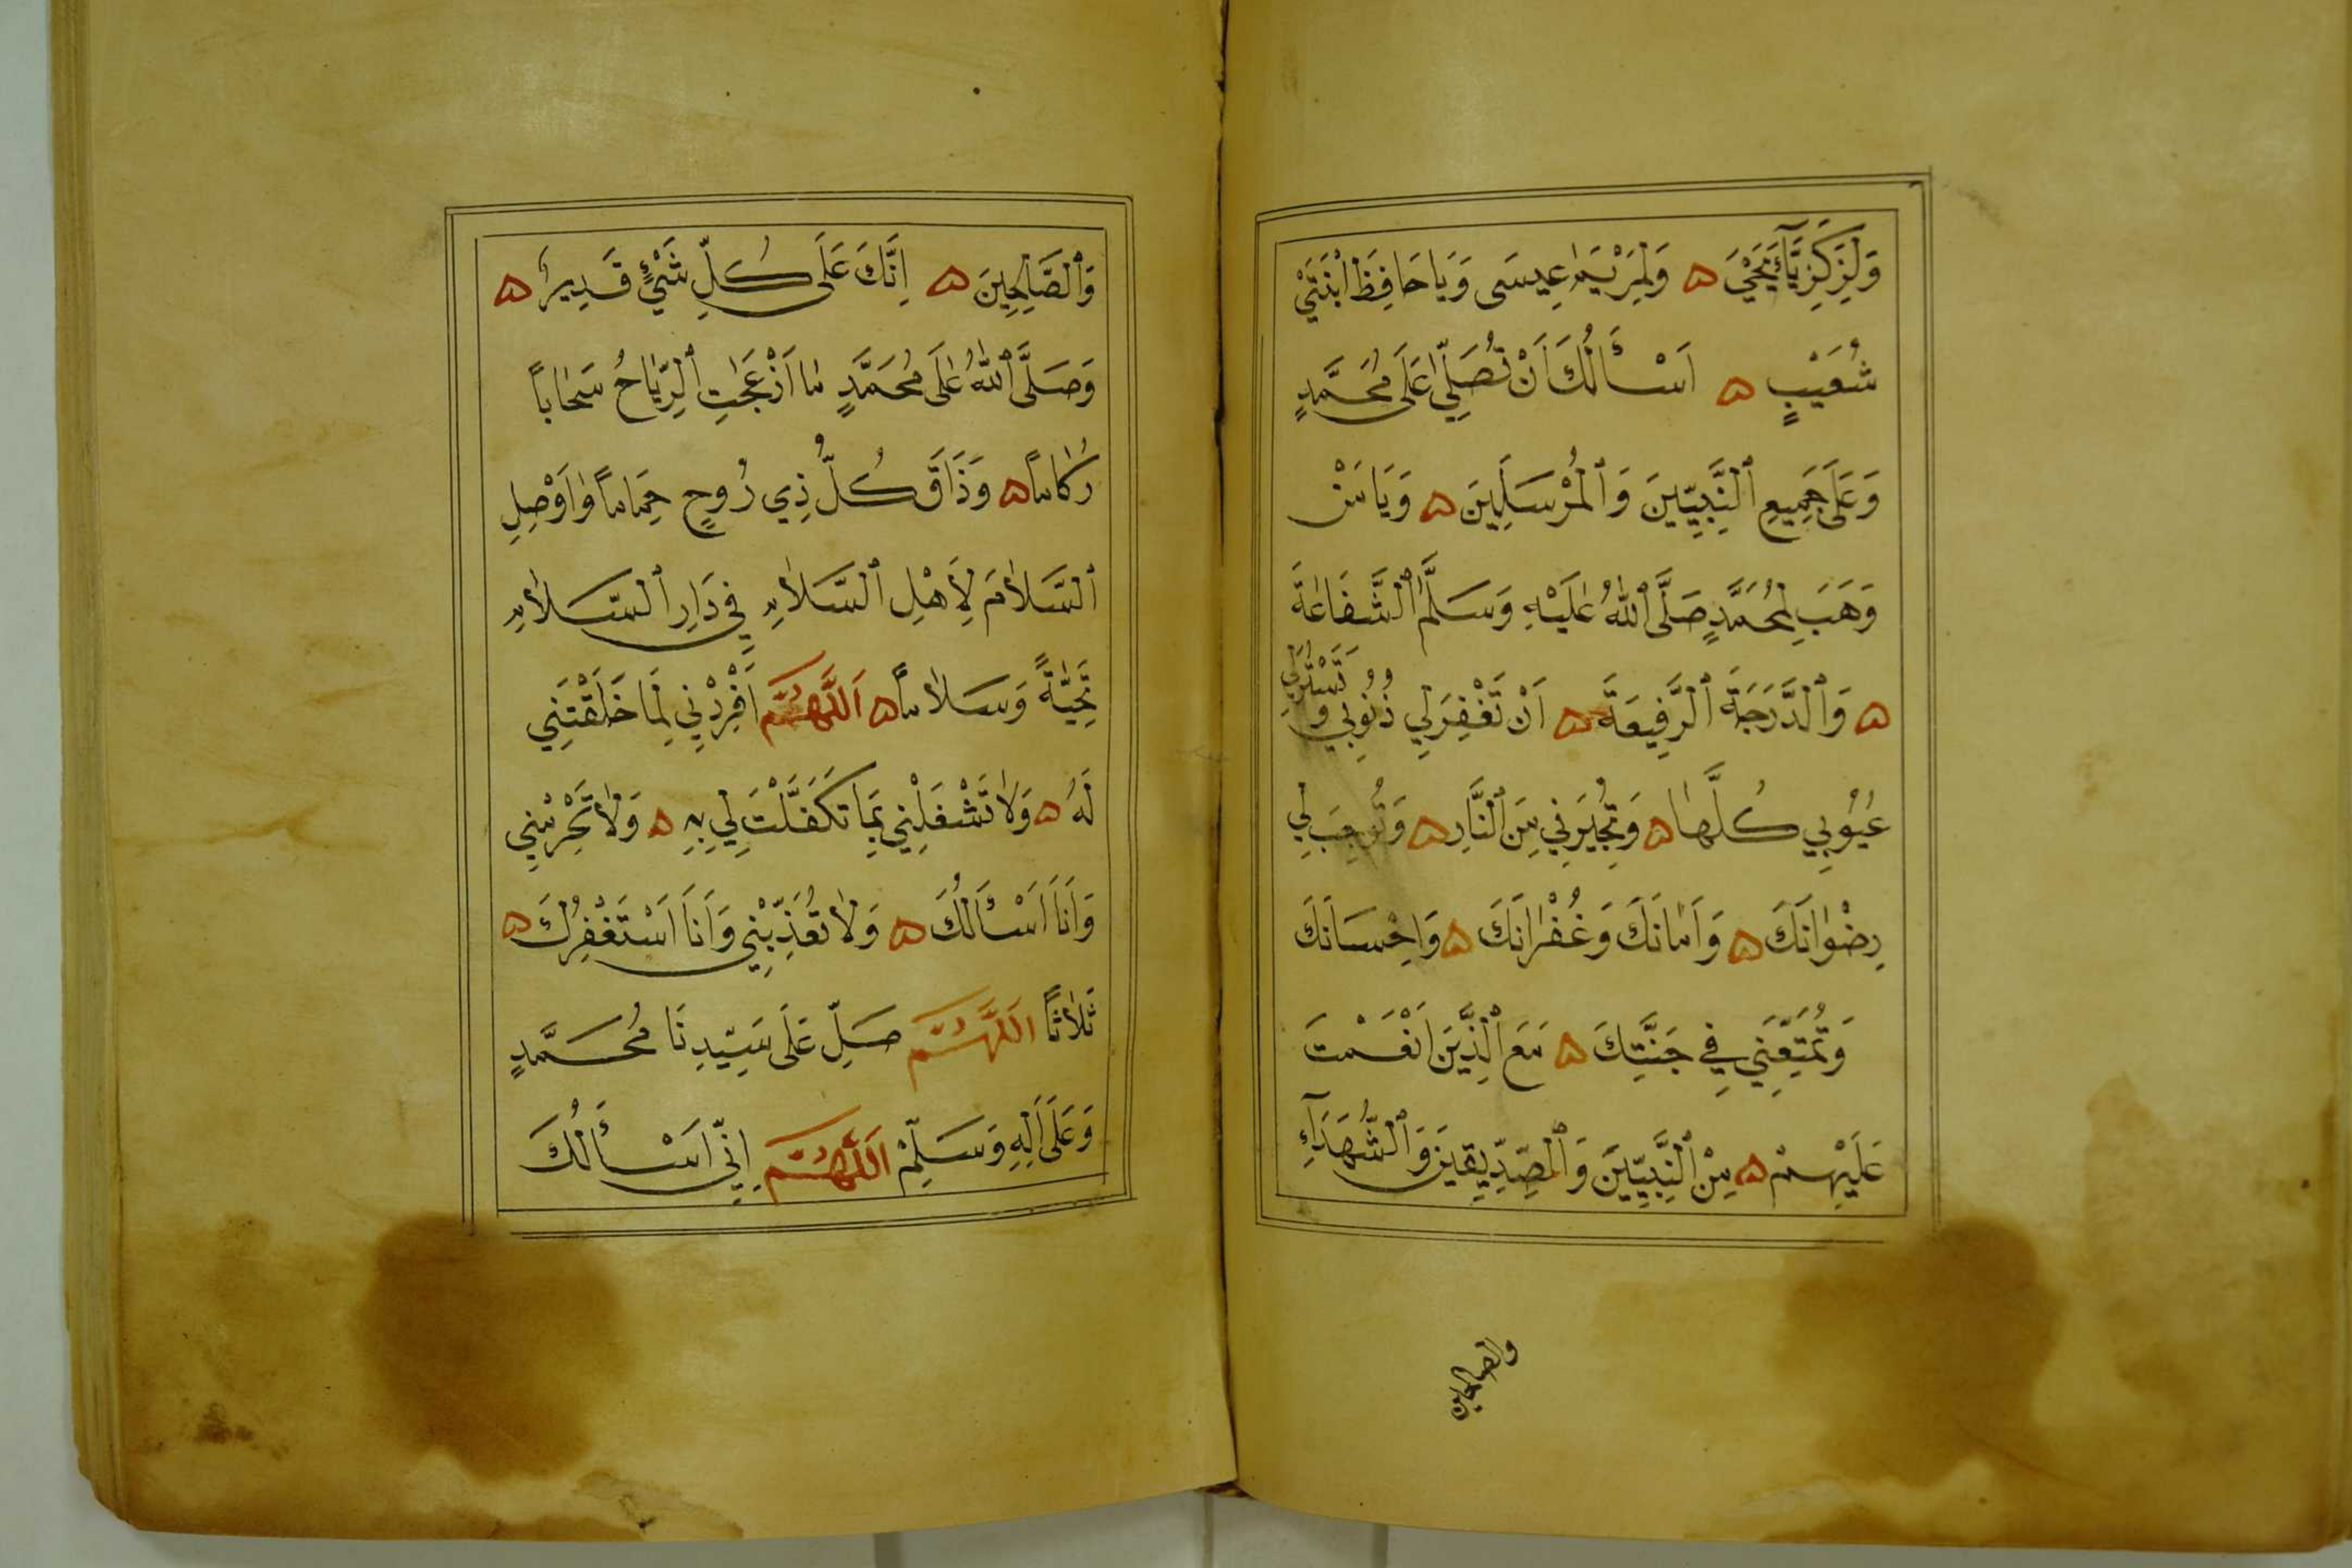 وَلِزَكَرِيَّآءَ يَحْيَى ۝ وَلِمَرْيَمَ عِيسَى وَيَا حَافِظَ ابْنَتَيْ
شُعَيْبٍ ۝ اَسْأَلُكَ اَنْ تُصَلِّيَ عَلَى مُحَمَّدٍ
وَعَلَى جَمِيعِ ٱلنَّبِيِّينَ وَٱلْمُرْسَلِينَ ۝ وَيَا مَنْ
وَهَبَ لِمُحَمَّدٍ صَلَّى ٱللهُ عَلَيْهِ وَسَلَّمَ ٱلشَّفَاعَةَ
۝ وَٱلدَّرَجَةَ ٱلرَّفِيعَةَ ۝ اَنْ تَغْفِرَ لِي ذُنُوبِي وَتَسْتُرَ لِي
عُيُوبِي كُلَّهَا ۝ وَتُجِيرَنِي مِنَ ٱلنَّارِ ۝ وَتُوجِبَ لِي
رِضْوَانَكَ ۝ وَاَمَانَكَ وَغُفْرَانَكَ ۝ وَاِحْسَانَكَ
وَتُمَتِّعَنِي فِي جَنَّتِكَ ۝ مَعَ ٱلَّذِينَ اَنْعَمْتَ
عَلَيْهِمْ ۝ مِنْ ٱلنَّبِيِّينَ وَٱلصِّدِّيقِينَ وَٱلشُّهَدَآءِ
والصالحين
وَٱلصَّالِحِينَ ۝ اِنَّكَ عَلَى كُلِّ شَيْءٍ قَدِيرٌ ۝
وَصَلَّى ٱللهُ عَلَى مُحَمَّدٍ مَا اَزْعَجَتِ ٱلرِّيَاحُ سَحَاباً
رُكَاماً ۝ وَذَاقَ كُلُّ ذِي رُوحٍ حِمَاماً وَاَوْصِلِ
ٱلسَّلاَمَ لِاَهْلِ ٱلسَّلاَمِ فِي دَارِ ٱلسَّلاَمِ
تَحِيَّةً وَسَلاَماً ۝ اَللَّهُمَّ اَفْرِدْنِي لِمَا خَلَقْتَنِي
لَهُ ۝ وَلاَ تَشْغَلْنِي بِمَا تَكَفَّلْتَ لِي بِهِ ۝ وَلاَ تَحْرِمْنِي
وَاَنَا اَسْأَلُكَ ۝ وَلاَ تُعَذِّبْنِي وَاَنَا اَسْتَغْفِرُكَ ۝
ثَلاَثاً اَللَّهُمَّ صَلِّ عَلَى سَيِّدِنَا مُحَمَّدٍ
وَعَلَى اَلِهِ وَسَلِّمْ اَللَّهُمَّ اِنِّي اَسْأَلُكَ